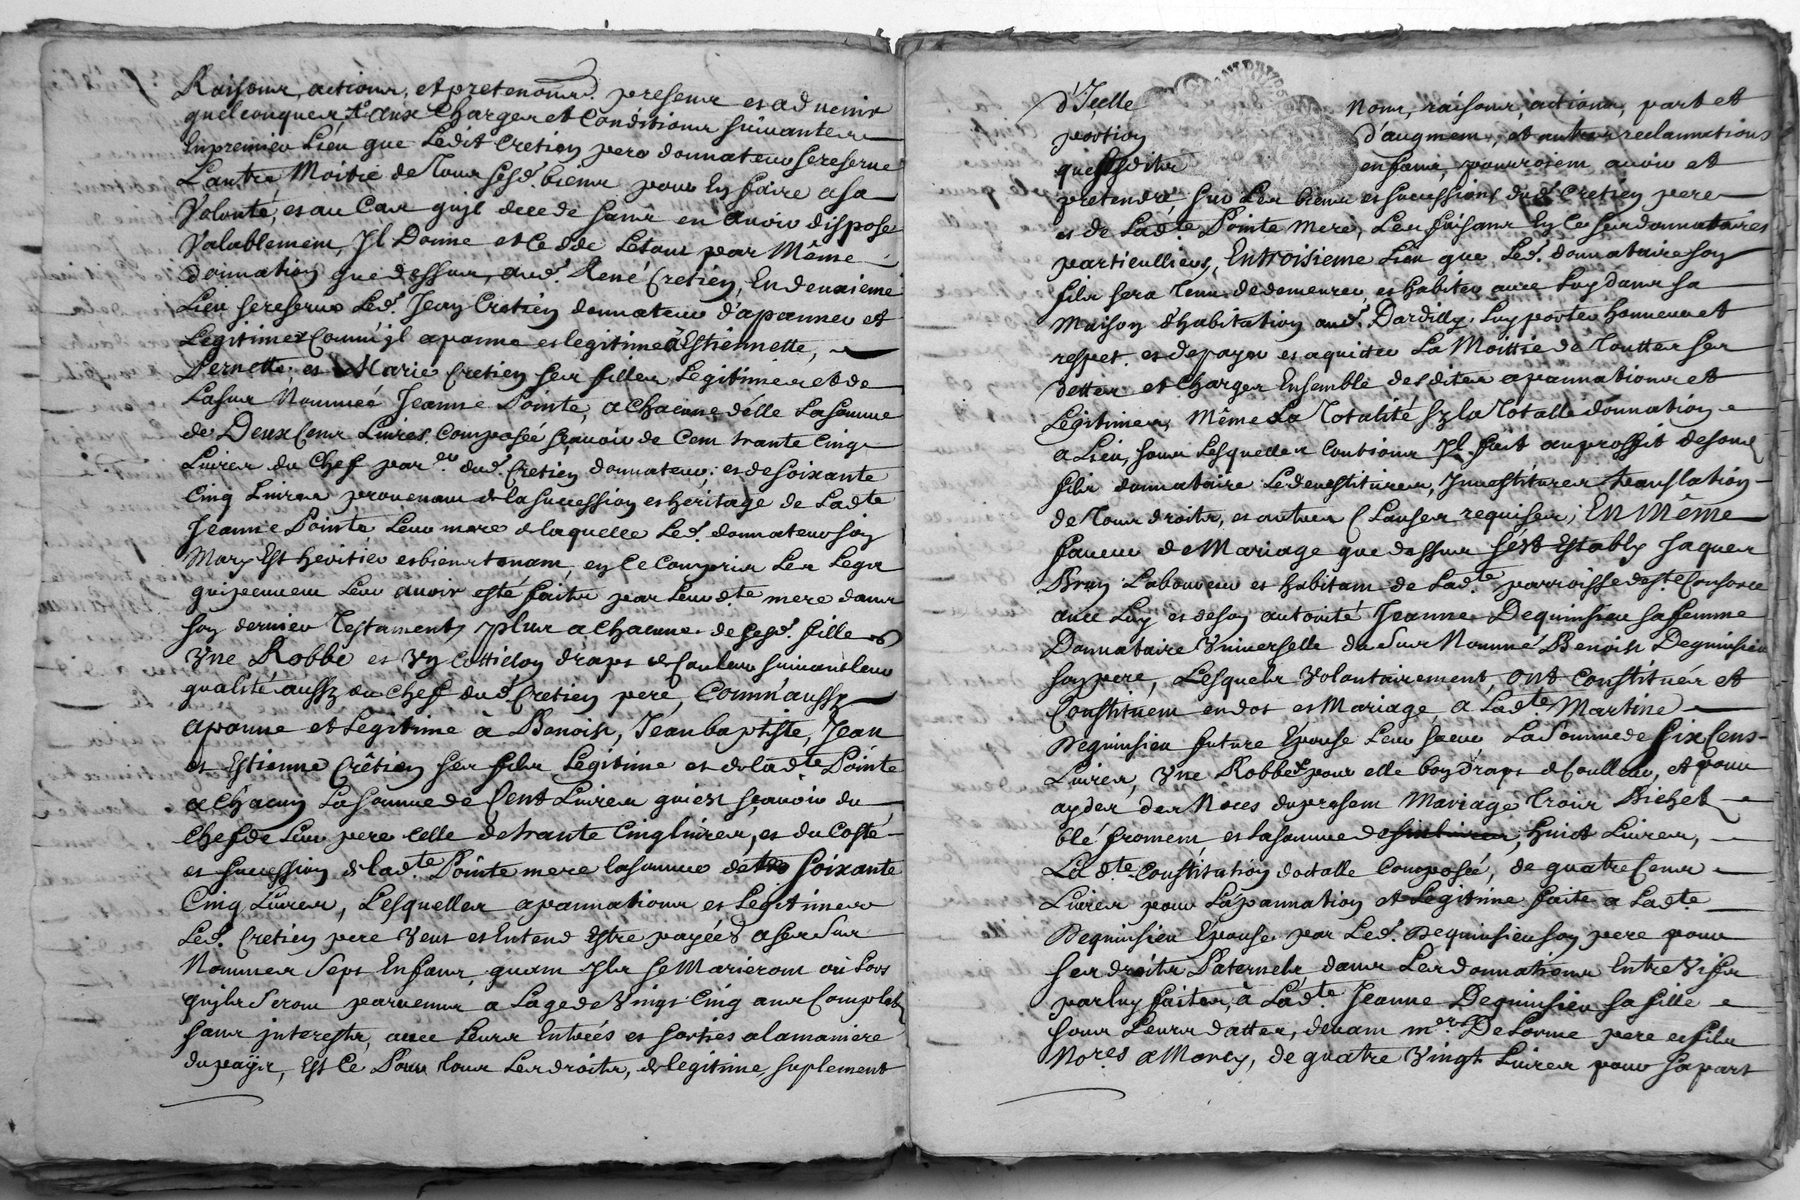 Raisons, actions, et pretentions presens et advenir
quelconques Et aux Charges et Conditions suivantes
En premier Lieu que Ledit Cretien pere donnateur se reserve
L'autre Moitié de Tous sesd. biens pour En faire a sa
Volonté, et au Cas qu'jl decede sans en avoir disposé
Valablement, Jl Donne et Cedde Le tout par Même
donnation que dessus, aud. René Cretien, En deuxieme
Lieu se reserve Led. Jean Cretien donnateur d'apanner et
Legitimer Comm'jl apanne et legitime à Estiennette,
Pernette, et Marie Cretien ses filles Legitimes et de
La sus Nommée Jeanne Pointe, a Chacune d'elle La somme
de Deux Cens Livres, Composée sçavoir de Cent trante Cinq
Livres du Chef par du dud. Cretien donnateur, et de soixante
Cinq Livres provenans de la succession et heritage de Ladte
Jeanne Pointe Leur mere de laquelle Led. donnateur son
Mary Est heritier et bien tenant, en Ce Compris Les Legs
qui peuvent Leur avoir esté faits par Leurdte mere dans
son dernier Testament, plus a Chacunes de sesd. filles
Vne Robbe et Vn Cottillon draps de Couleur suivant leur
qualité aussy du Chef dud. Cretien pere, Comm'aussy
apanne et Legitime à Benoist, Jean baptiste, Jean
et Estienne Crêtien ses fils Legitime et de ladte Pointe
a Chacun La somme de Cent Livres qui est sçavoir du
Chef de Leur pere Celle de trante Cinq livres, et du Costé
et succession de ladte Pointe mere la somme de soixante
Cinq Livres, Lesquelles apannations et Legitimes
Led. Cretien pere Veut et Entend Estre payées a ses sus
Nommes Sept Enfans, quant Jls se Marieront où Lors
qu'jls seront parvenus a L'age de Vingt Cinq ans Complets
sans jnterests, avec Leurs Entrées et sorties a la maniere
du païs, Est Ce Pour tous Les droits, de legitime, suplement
d'Jcelle
Noms, raisons, actions, part et
portion
d'augment, et autres reclamations
que Lesdits
enfans, pourroient avoir et
pretendre, sur Les biens et successions dud. Cretien pere
et de Ladte Pointe mere, Les faisans En Ce ses donnataires
particulliers, En troisieme Lieu que Led. donnataire son
fils sera Tenu de demeurer et habiter avec Luy dans sa
Maison d'habitation aud. Dardilly, Luy porter honneur et
respet et de payer et aquiter La Moittié de Touttes ses
dettes et Charges Ensemble desdites apannations et
Legitimes, Même La Totalité sy la Totalle donnation
a Lieu, sous Lesquelles Conditions Jl fait au proffit de sond
fils donnataire Les devestitures, Jnvestitures translation
de Tous droits, et autres Clauses requises; En Même
faveur de Mariage que dessus s'est Estably Jaques
Brun Laboureur et habitant de Ladte parroisse de ste Consorce
avec Luy et de son autorité Jeanne Dequinsieu sa femme
Donnataire Vniverselle du sus Nommé Benoist Dequinsieu
son pere, Lesquels Volontairement ont Constitués et
Constituent en dot et Mariage, a Ladte Martine
Dequinsieu future Epouse Leur soeur, La somme de Six Cens
Livres, Vne Robbe pour elle bon draps de Coulleur, et pour
ayder des Noces du present Mariage Trois Bichet
blé froment, et la somme de six livres, huict Livres,
Ladte Constitution dotalle Composée, de quatre Cens
Livres pour L'apannation et Legitime faite a Ladte
Dequinsieu Epouse par Led. Dequinsieu son pere pour
ses droits Paternels dans Les donnations Entre Vifs
par luy faites, à Ladte Jeanne Dequinsieu sa fille
sous Leurs dattes, devant mers De Lorme pere et fils
Nores a Marcy, de quatre Vingt Livres pour sa part